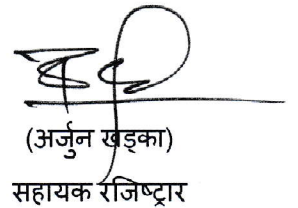 (अर्जुन खड्का)
सहायक रजिष्ट्रार